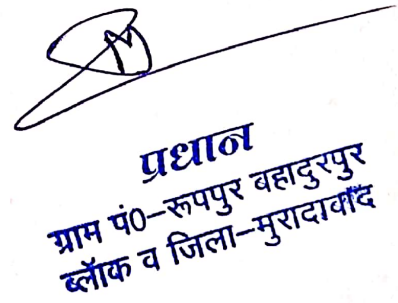 प्रधान
ग्राम पं0-रूपपुर बहादुरपुर
ब्लॅाक व जिला-मुरादाबाद